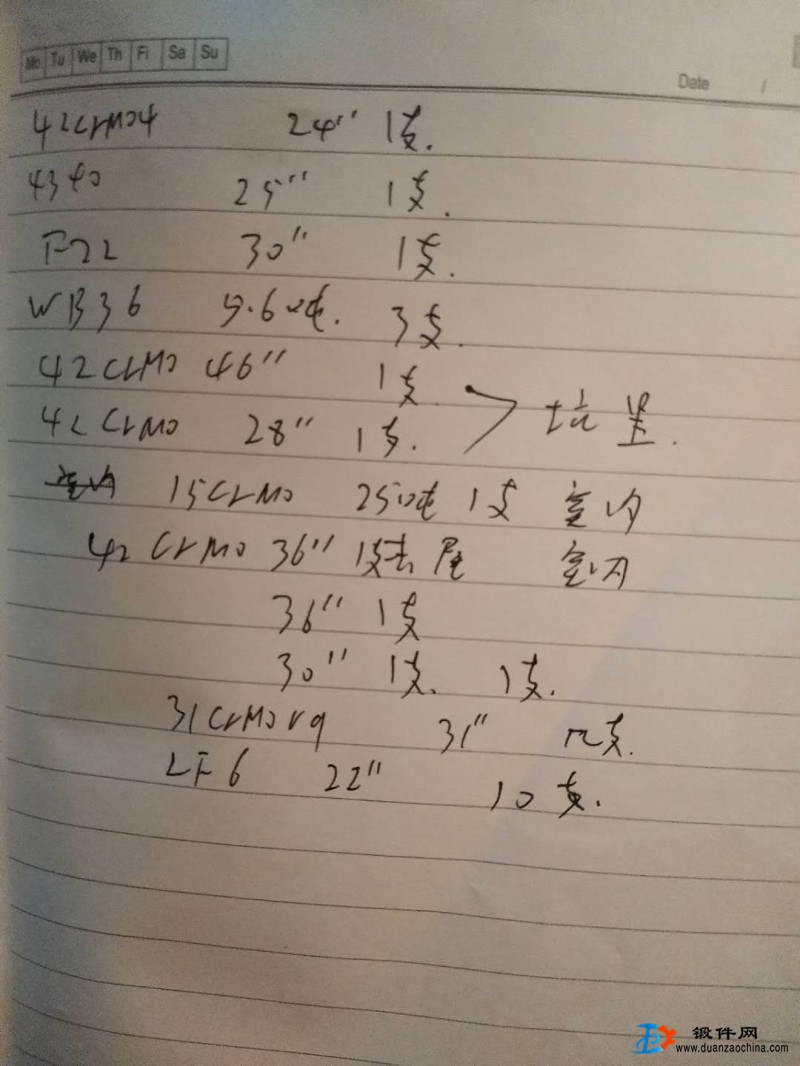 Mo Tu We Th Fi Sa Su
Date /
42CrMo4 24" 1支.
4340 25" 1支.
F22 30" 1支.
WB36 9.6吨. 3支.
42CrMo 46" 1支.
42CrMo 28" 1支.
室内 15CrMo 25吨 1支 室内
42CrMo 36" 1支去尾 室内
36" 1支
30" 1支. 1支.
31CrMoV9 31" 支.
LF6 22" 10支.
锻件网
www.duanzaochina.com